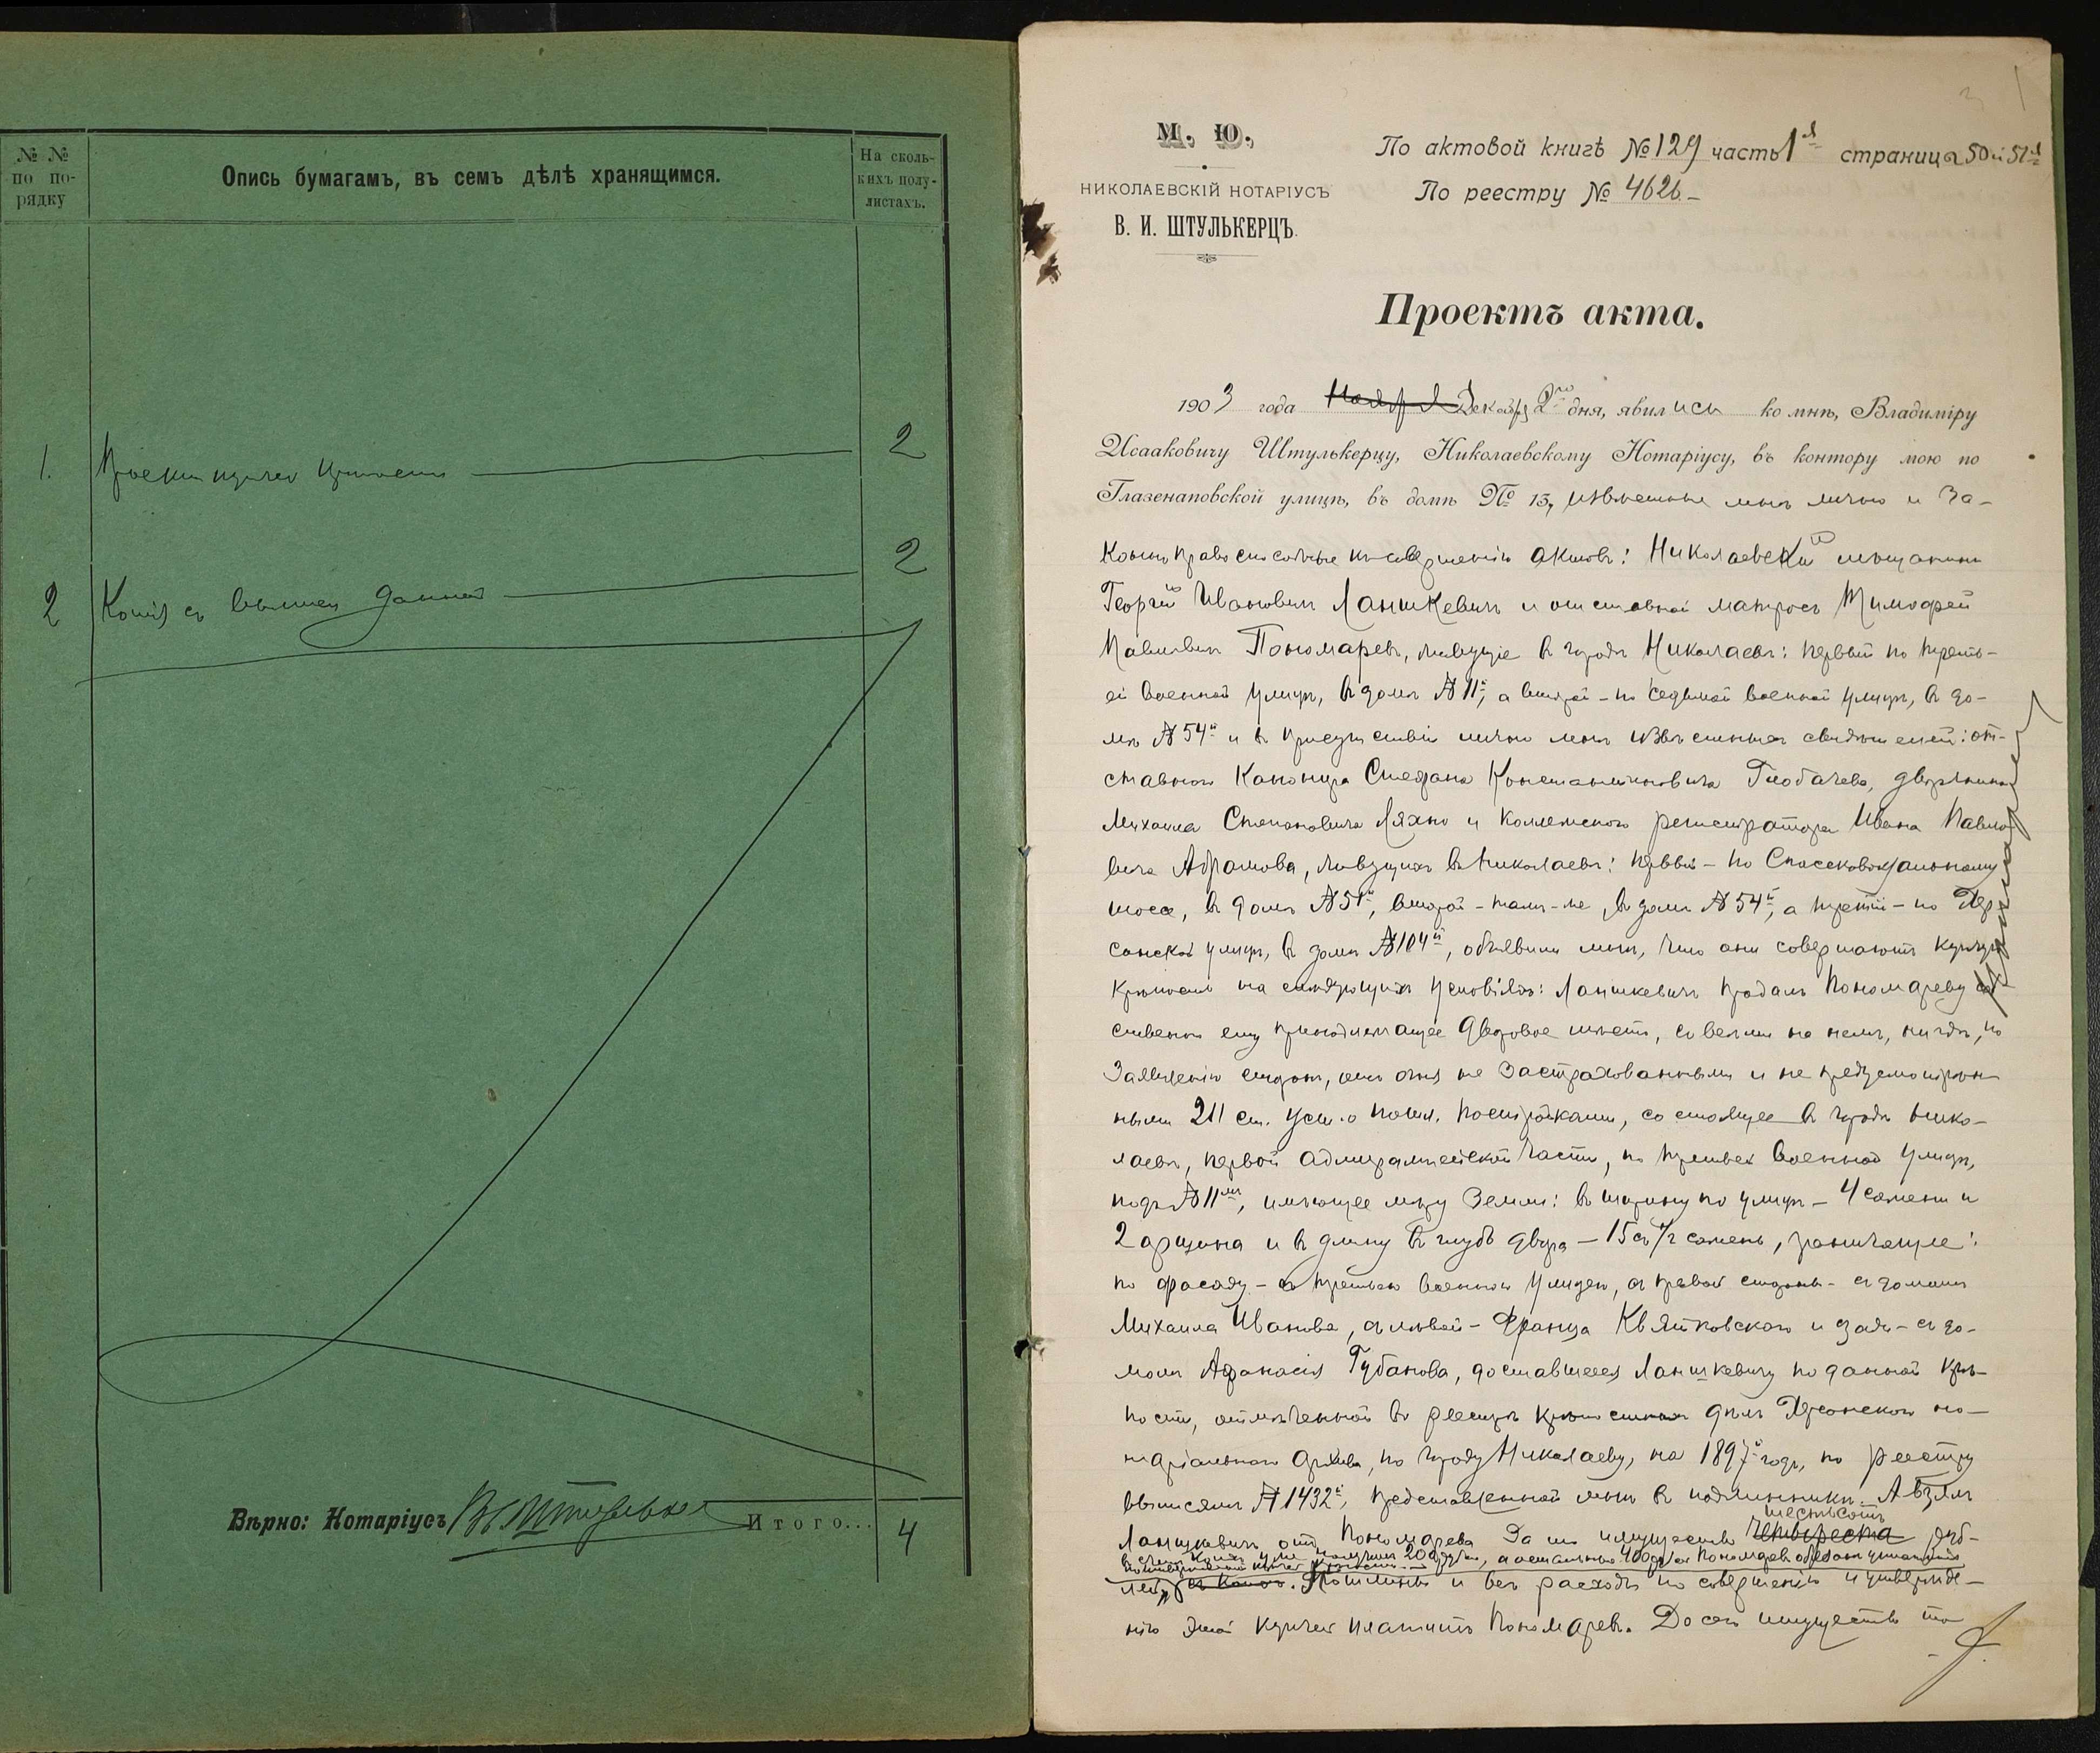 № № по по-рядку
Опись бумагамъ, въ семъ дѣлѣ хранящимся.
На сколь-кихъ полу-листахъ.
1. Проектъ купчей крѣпости 2
2 Копія съ выписи данной 2
Вѣрно: Нотаріусъ
Итого... 4
М. Ю.
НИКОЛАЕВСКІЙ НОТАРІУСЪ
В. И. ШТУЛЬКЕРЦЪ.
По актовой книгѣ № 129 часть 1я страница 50 и 51я
По реестру № 4626.
Проектъ акта.
1903 года Ноября Декабря 2го дня, явились ко мнѣ, Владиміру
Исааковичу Штулькерцу, Николаевскому Нотаріусу, въ контору мою по
Глазенаповской улицѣ, въ домѣ № 13, извѣстные мнѣ лично и за-
конно правоспособные къ совершенію актовъ: Николаевскій мѣщанинъ
Георгій Ивановичъ Ланшкевичъ и отставной матросъ Тимофей
Павловичъ Пономаревъ, живущіе въ городѣ Николаевѣ: первый по треть-
ей Военной улицѣ, въ домѣ № 11й, а второй - по седьмой Военной улицѣ, въ до-
мѣ № 54й и въ присутствіи лично мнѣ извѣстныхъ свидѣтелей: от-
ставного канонира Степана Константиновича Глобачева, дворянина
Михаила Степановича Ляхно и коллежскаго регистратора Ивана Павло-
вича Абрамова, живущихъ въ Николаевѣ: первый - по Спасскому
шоссе, въ домѣ № 51й, второй - тамъ-же, въ домѣ № 54й, а третій - по Хер-
сонской улицѣ, въ домѣ № 104й, объявили мнѣ, что они совершаютъ купчую
крѣпость на слѣдующихъ условіяхъ: Ланшкевичъ продалъ Пономареву соб-
ственно ему принадлежащее дворовое мѣсто, со всѣми на немъ, нигдѣ, по
заявленію сторонъ, отъ огня не застрахованными и не предусмотрен-
ными 211 ст. уст. о пошл. постройками, состоящее въ городѣ Нико-
лаевѣ, первой Адмиралтейской части, по третьей Военной улицѣ,
подъ № 11мъ, имѣющее мѣру земли: въ ширину по улицѣ - 4 сажени и
2 аршина и въ длину въ глубь двора - 15 съ 1/2 сажень, граничащее:
по фасаду - съ третьею Военною улицею, съ правой стороны - съ домомъ
Михаила Иванова, съ лѣвой - Франца Квятковскаго и сзади - съ до-
момъ Афанасія Губанова, доставшееся Ланшкевичу по данной крѣ-
пости, отмѣченной въ реестрѣ крѣпостныхъ дѣлъ Херсонскаго но-
таріальнаго Архива, по городу Николаеву, на 1897й годъ, по реестру
выписями № 1432й, представленной мнѣ въ подлинникѣ. А взялъ
шестьсотъ
Ланшкевичъ отъ Пономарева за то имущество четыреста руб-
въ счетъ коихъ уже получилъ 200 рублей, а остальные 400 рублей Пономаревъ обязанъ уплатить
лей, въ коихъ. Пошлины и всѣ расходы по совершенію и утвержде-
нію этой купчей платитъ Пономаревъ. До сего имущество то